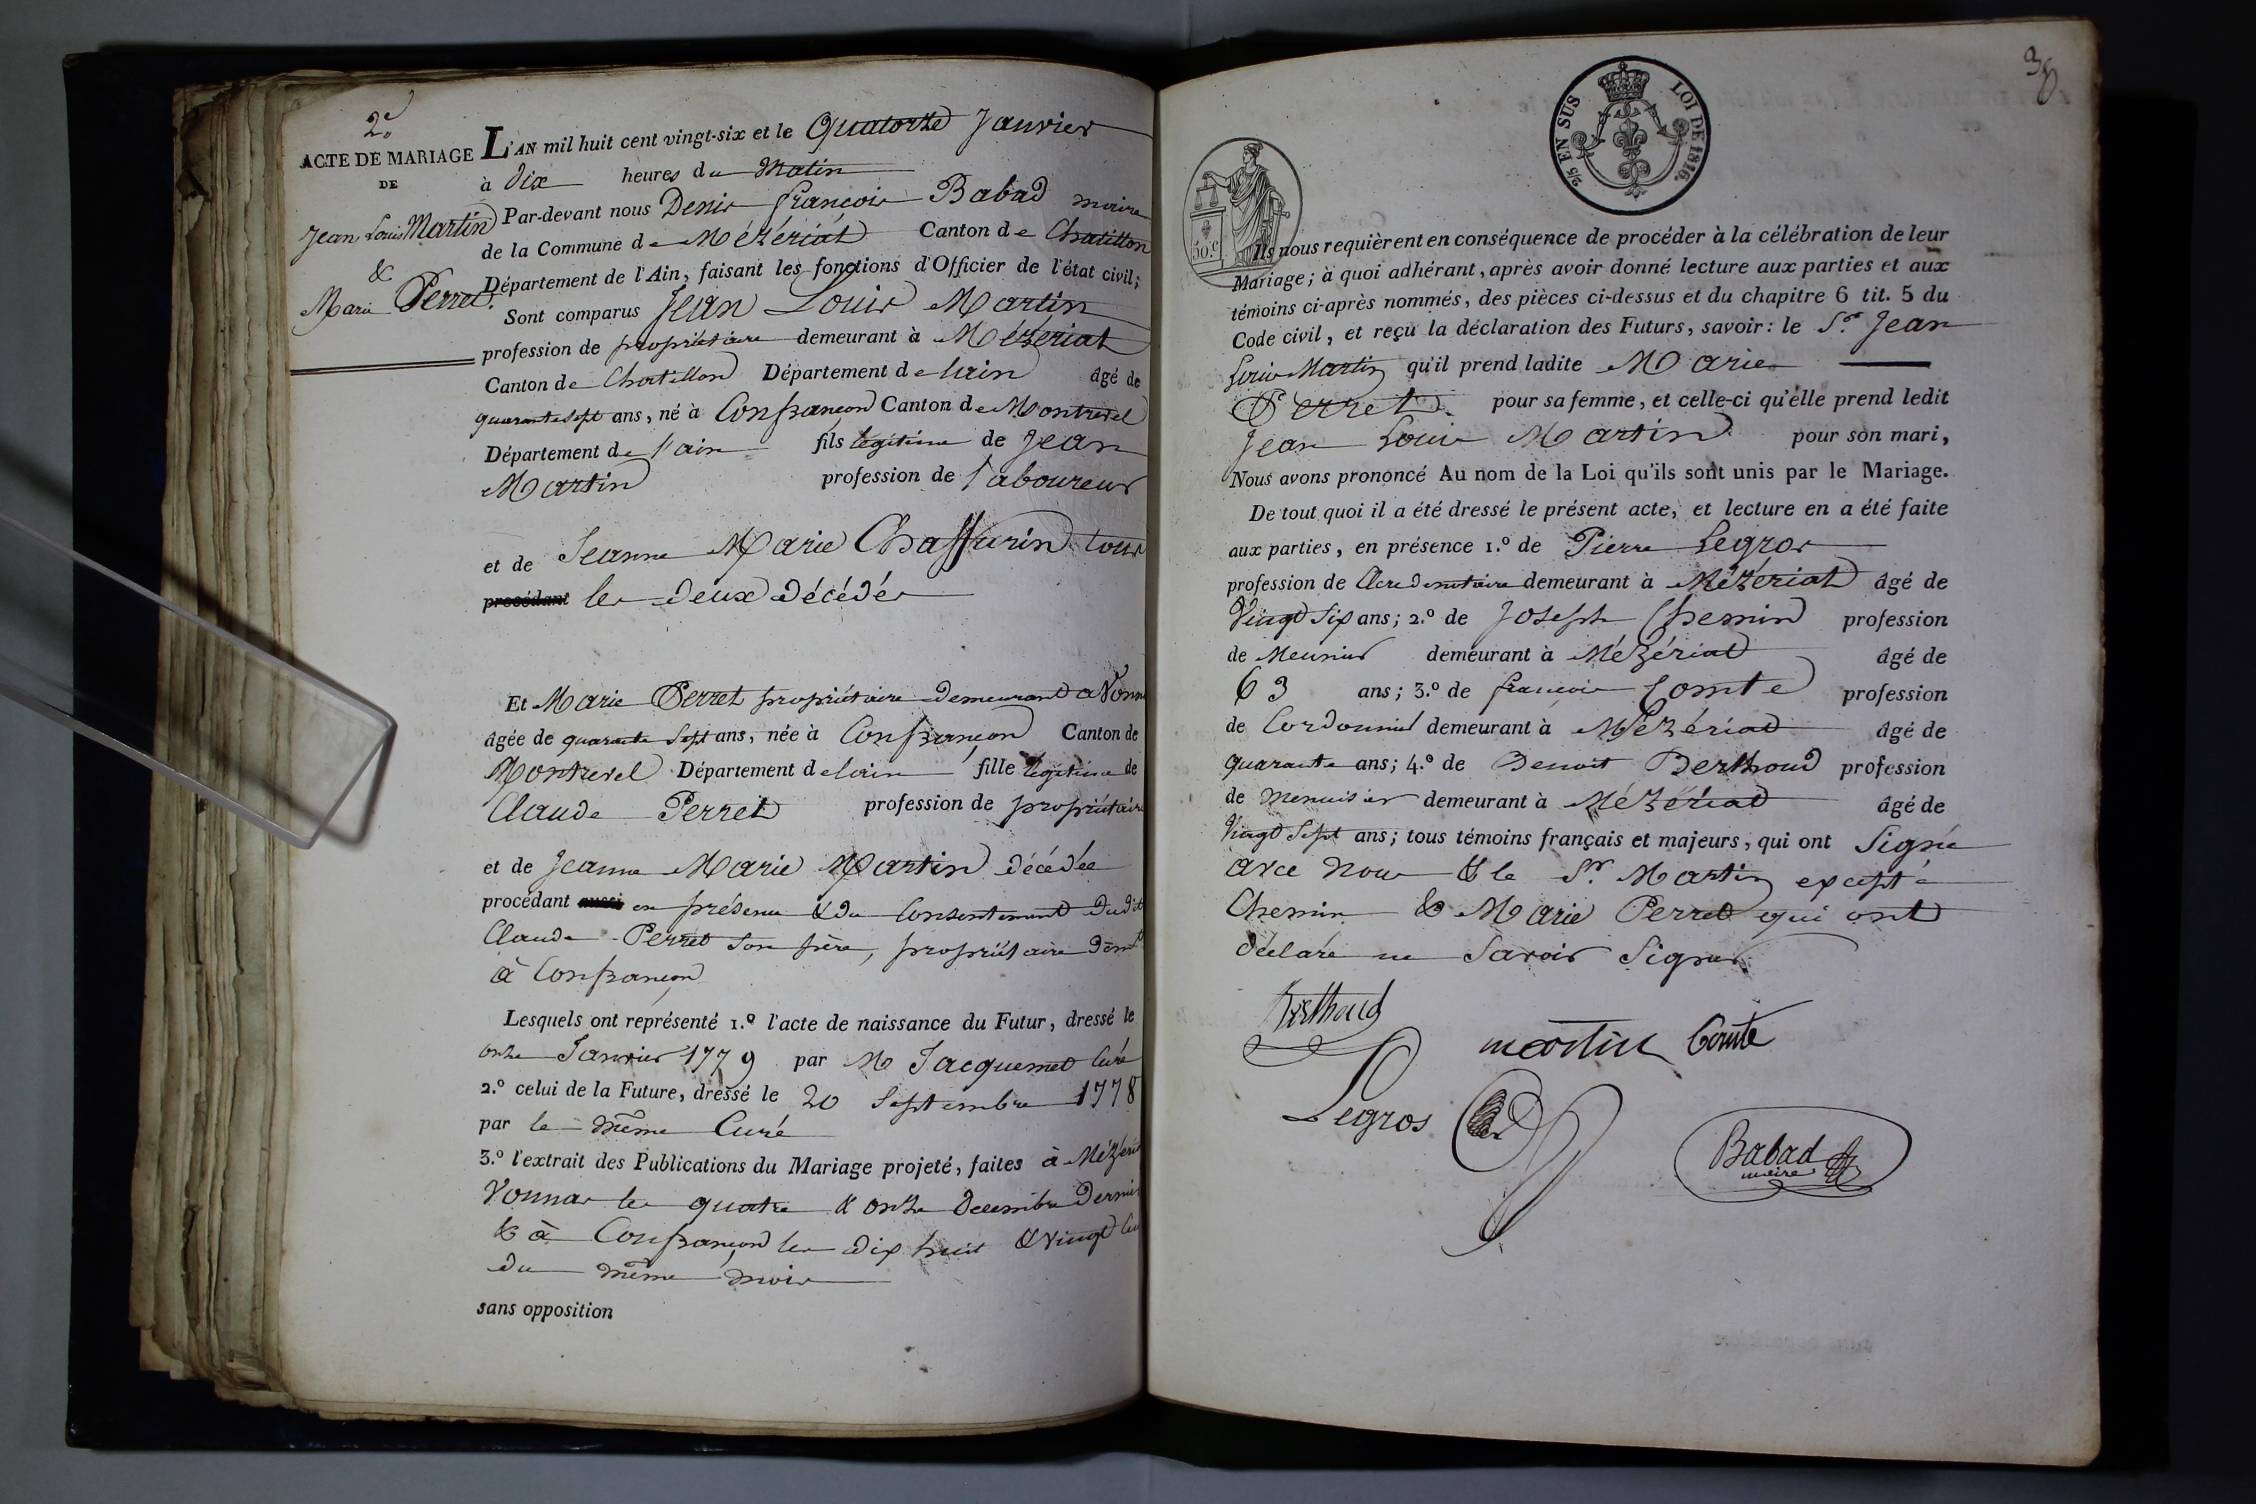 2e.
ACTE DE MARIAGE
DE
Jean Louis Martin
&
Marie Perret.
L'AN mil huit cent vingt-six et le Quatorze Janvier
à Dix heures du Matin
Par-devant nous Denis françois Babad maire
de la Commune de Mézériat Canton de Chatillon
Département de l'Ain, faisant les fonctions d'Officier de l'état civil;
Sont comparus Jean Louis Martin
profession de propriétaire demeurant à Mézériat
Canton de Chatillon Département de lain âgé de
quarante sept ans, né à Confrançon Canton de Montrevel
Département de l'ain fils légitime de Jean
Martin profession de laboureur
et de Jeanne Marie Chaffurin tous
procédant les deux décédés
Et Marie Perret propriétaire demeurant a Vonn
âgée de quarante Sept ans, née à Confrançon Canton de
Montrevel Département de lain fille légitime de
Claude Perret profession de propriétaire
et de Jeanne Marie Martin décédée
procédant aussi en présence & du Consentement dudit
Claude Perret Son père, propriétaire demt
à Confrançon
Lesquels ont représenté 1.º l'acte de naissance du Futur, dressé le
onze Janvier 1779 par M Jacquemet Curé
2.º celui de la Future, dressé le 20 Septembre 1778
par le même Curé
3.º l'extrait des Publications du Mariage projeté, faites à Mézéri
Vonnas les quatre & onze Decembre Dernie
& à Confrançon les dix huit & vingt
du même mois
sans opposition
38
2/5 EN SUS LOI DE 1816.
50.c
Ils nous requièrent en conséquence de procéder à la célébration de leur
Mariage; à quoi adhérant, après avoir donné lecture aux parties et aux
témoins ci-après nommés, des pièces ci-dessus et du chapitre 6 tit. 5 du
Code civil, et reçu la déclaration des Futurs, savoir: le Sr. Jean
Louis Martin qu'il prend ladite Marie
Perret pour sa femme, et celle-ci qu'elle prend ledit
Jean Louis Martin pour son mari,
Nous avons prononcé Au nom de la Loi qu'ils sont unis par le Mariage.
De tout quoi il a été dressé le présent acte, et lecture en a été faite
aux parties, en présence 1.º de Pierre Legros
profession de demeurant à Mézériat âgé de
Vingt Six ans; 2.º de Joseph Chemin profession
de Meunier demeurant à Mézériat âgé de
63 ans; 3.º de françois Comte profession
de Cordonnier demeurant à Mézériat âgé de
quarante ans; 4.º de Benoit Berthoud profession
de Menuisier demeurant à Mézériat âgé de
Vingt Sept ans; tous témoins français et majeurs, qui ont Signé
avec nous & le Sr. Martin excepté
Chemin & Marie Perret qui ont
déclaré ne Savoir Signer.
Berthoud
martin Comte
Legros
Babad
maire